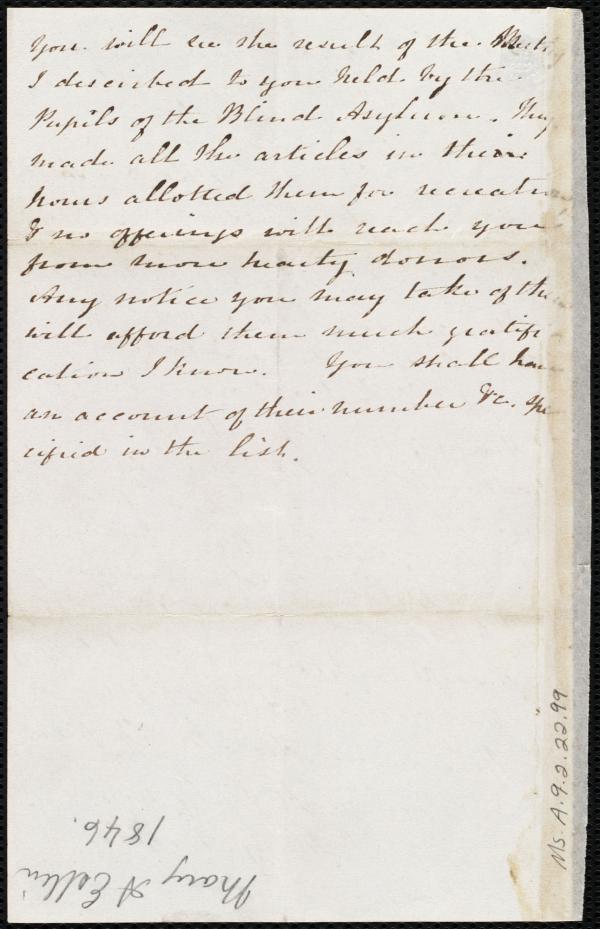 You will see the result of the Meeting
I described to you held by the
Pupils of the Blind Asylum. They
made all the articles in their
hours allotted them for recreation
& no offerings will reach you
from more hearty donors.
Any notice you may take of them
will afford them much gratifi
cation I know. You shall have
an account of their number &c. spe
cified in the list.
Mary A Estlin
1846.
Ms. A. 9. 2. 22. 99